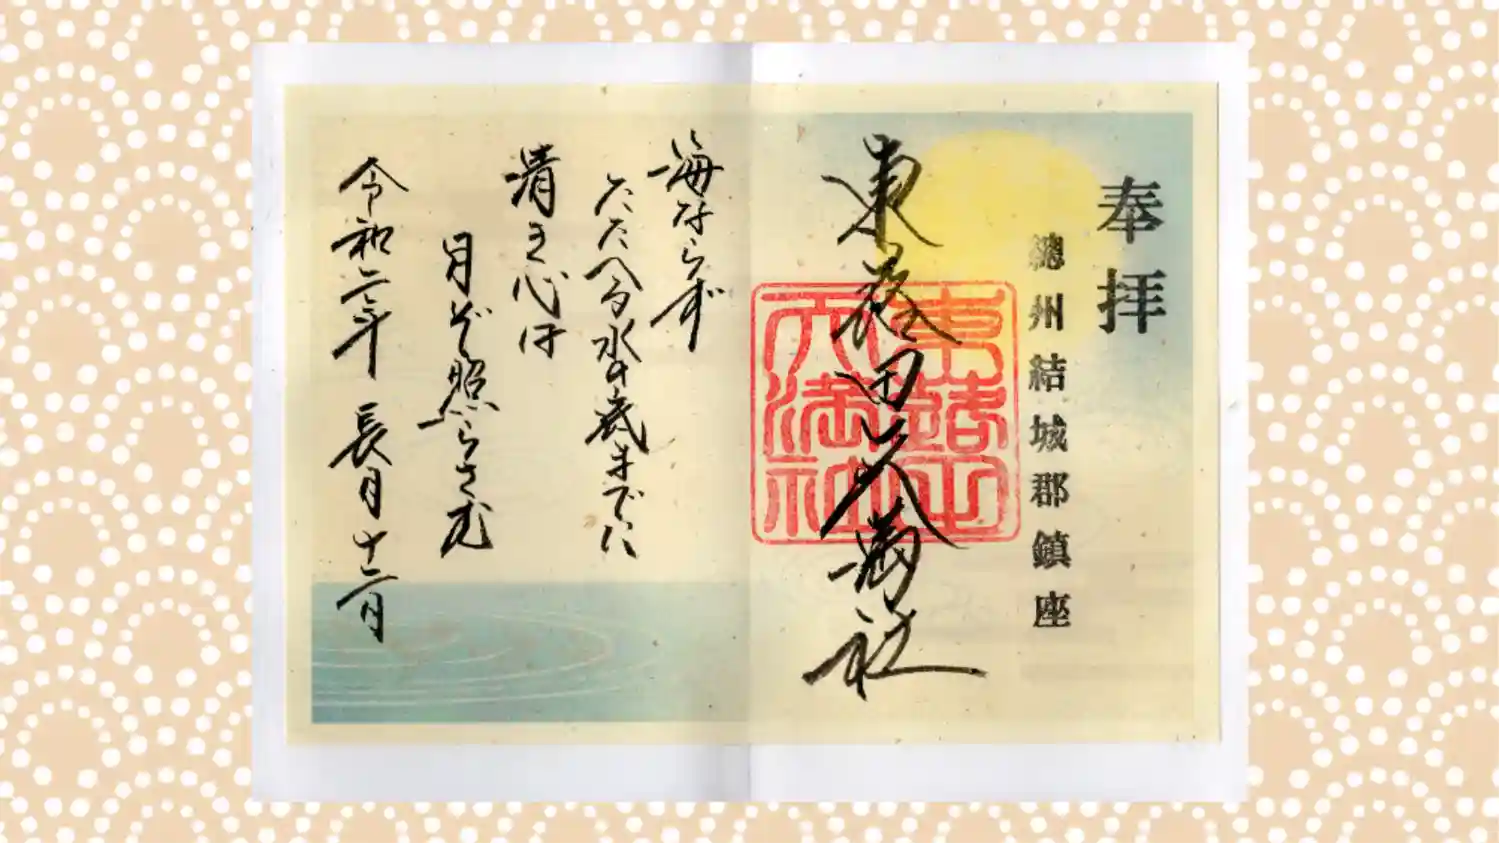 奉拝
總州結城郡鎮座
東蕗田天満社
東蕗田
天満社
海ならず
たたへる水の底までに
清き心は
月ぞ照らさむ
令和二年 長月十二日